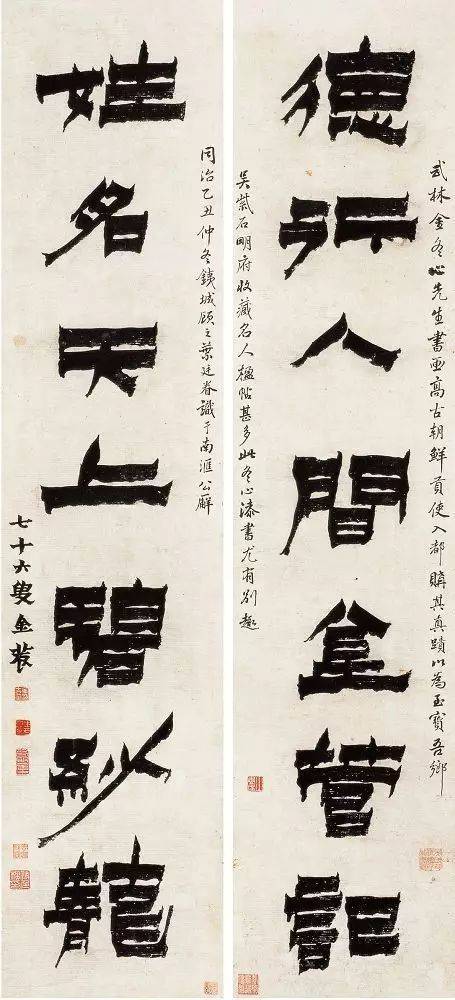 德行人間金管記
武林金冬心先生書画高古朝鮮貢使入都購其真蹟以為至寶吾鄉
吴紫石明府收藏名人楹帖甚多此冬心漆書尤有別趣
姓名天上碧紗籠
同治乙丑仲冬銕城顾之葉廷眷識于南滙公廨
七十六叟金農